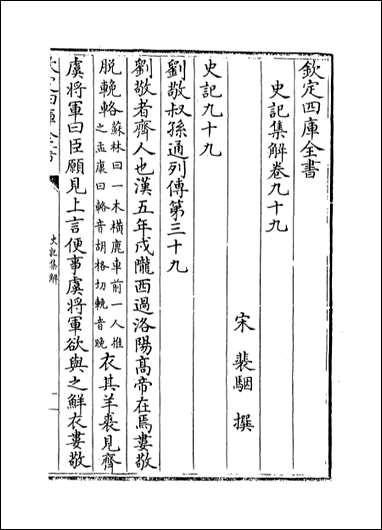 欽定四庫全書
史記集解卷九十九
宋 裴駰 撰
史記九十九
劉敬叔孫通列傳第三十九
劉敬者齊人也漢五年戍隴西過洛陽高帝在焉婁敬
脫輓輅蘇林曰一木橫鹿車前一人推之孟康曰輅音胡格切輓音晚衣其羊裘見齊
虞將軍曰臣願見上言便事虞將軍欲與之鮮衣婁敬
史記集解